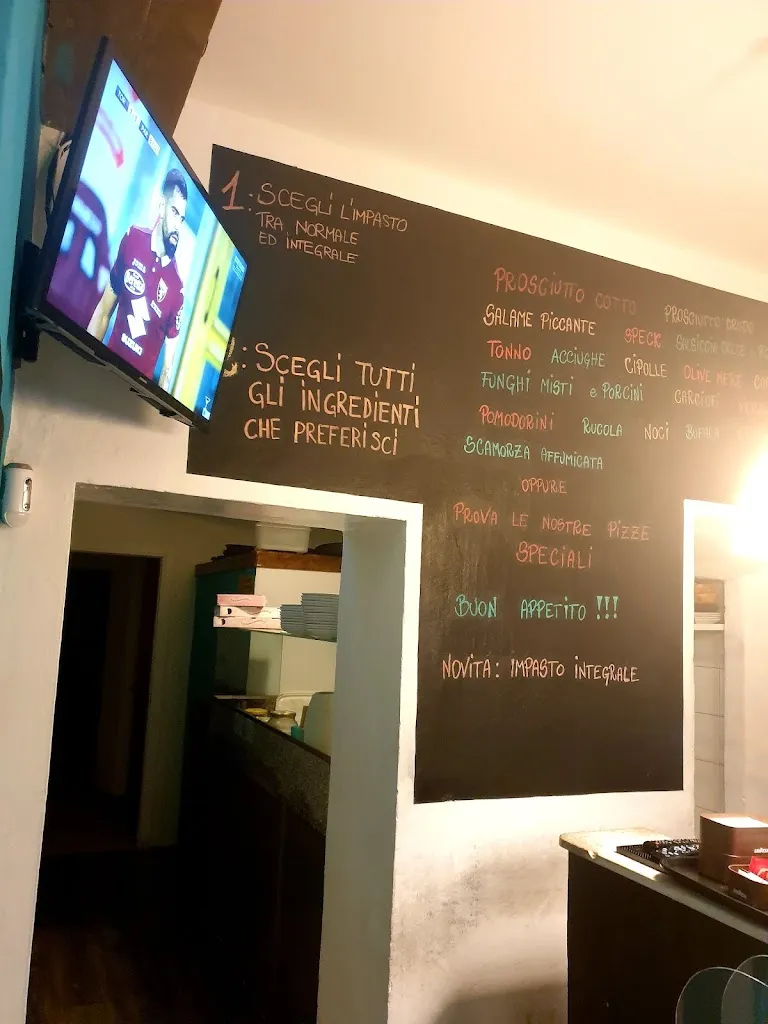 1: SCEGLI L'IMPASTO
TRA NORMALE
ED INTEGRALE
: SCEGLI TUTTI
GLI INGREDIENTI
CHE PREFERISCI
PROSCIUTTO COTTO PROSCIUTTO CRUDO
SALAME PICCANTE SPECK SALSICCIA DOLCE
TONNO ACCIUGHE CIPOLLE OLIVE NERE
FUNGHI MISTI e PORCINI CARCIOFI
POMODORINI RUCOLA NOCI BUFALA
SCAMORZA AFFUMICATA
OPPURE
PROVA LE NOSTRE PIZZE
SPECIALI
BUON APPETITO !!!
NOVITA: IMPASTO INTEGRALE
SUZUKI